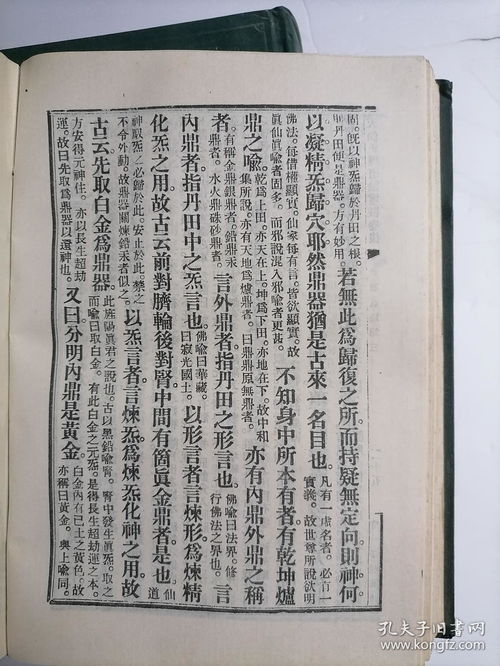 固。旣以神炁歸於丹田之根。則丹田便是鼎器。方有妙用。若無此爲歸復之所。而持疑無定向。則神何
以凝精炁歸穴耶。然鼎器猶是古來一名目也。凡有一虛名者。必有一實義。故世尊所說欲明
佛法。每借權顯實。仙家每有言。皆欲顯實。故眞仙眞喻者固多。而邪說混入邪喻者更甚。不知身中所本有者。有乾坤爐
鼎之喩。乾爲上田。亦天在上。坤爲下田。亦地在下。故中和集所說。亦有天地爲爐鼎者。曰鼎鼎原無鼎者。亦有內鼎外鼎之稱
者。有稱金鼎銀鼎者。鉛鼎汞鼎者。水火鼎硃砂鼎者。言外鼎者。指丹田之形言也。佛喻曰法界。修行佛法之界也。言
內鼎者。指丹田中之炁言也。佛喻曰華藏。曰寂光國土。以形言者。言煉形爲煉精
化炁之用。故古云前對臍輪後對腎。中間有箇眞金鼎者是也。仙道
神馭炁之必歸於此。安止於此。禁之不令外動。故鼎器關煉鉛汞者似之。以炁言者。言煉炁爲煉炁化神之用。故
古云先取白金爲鼎器。此旌陽眞君之說也。古以黑鉛喻腎。腎中發生眞炁。取之而喻曰取白金。有此白金之元炁。是得長生超劫運之本。故
方安得元神住。亦以長生超劫運。故曰先取爲鼎器以還神也。又曰分明內鼎是黃金。白金內有已土之黃色。故亦稱曰黃金。與上喻同。
孔夫子旧书网
www.kongfz.com